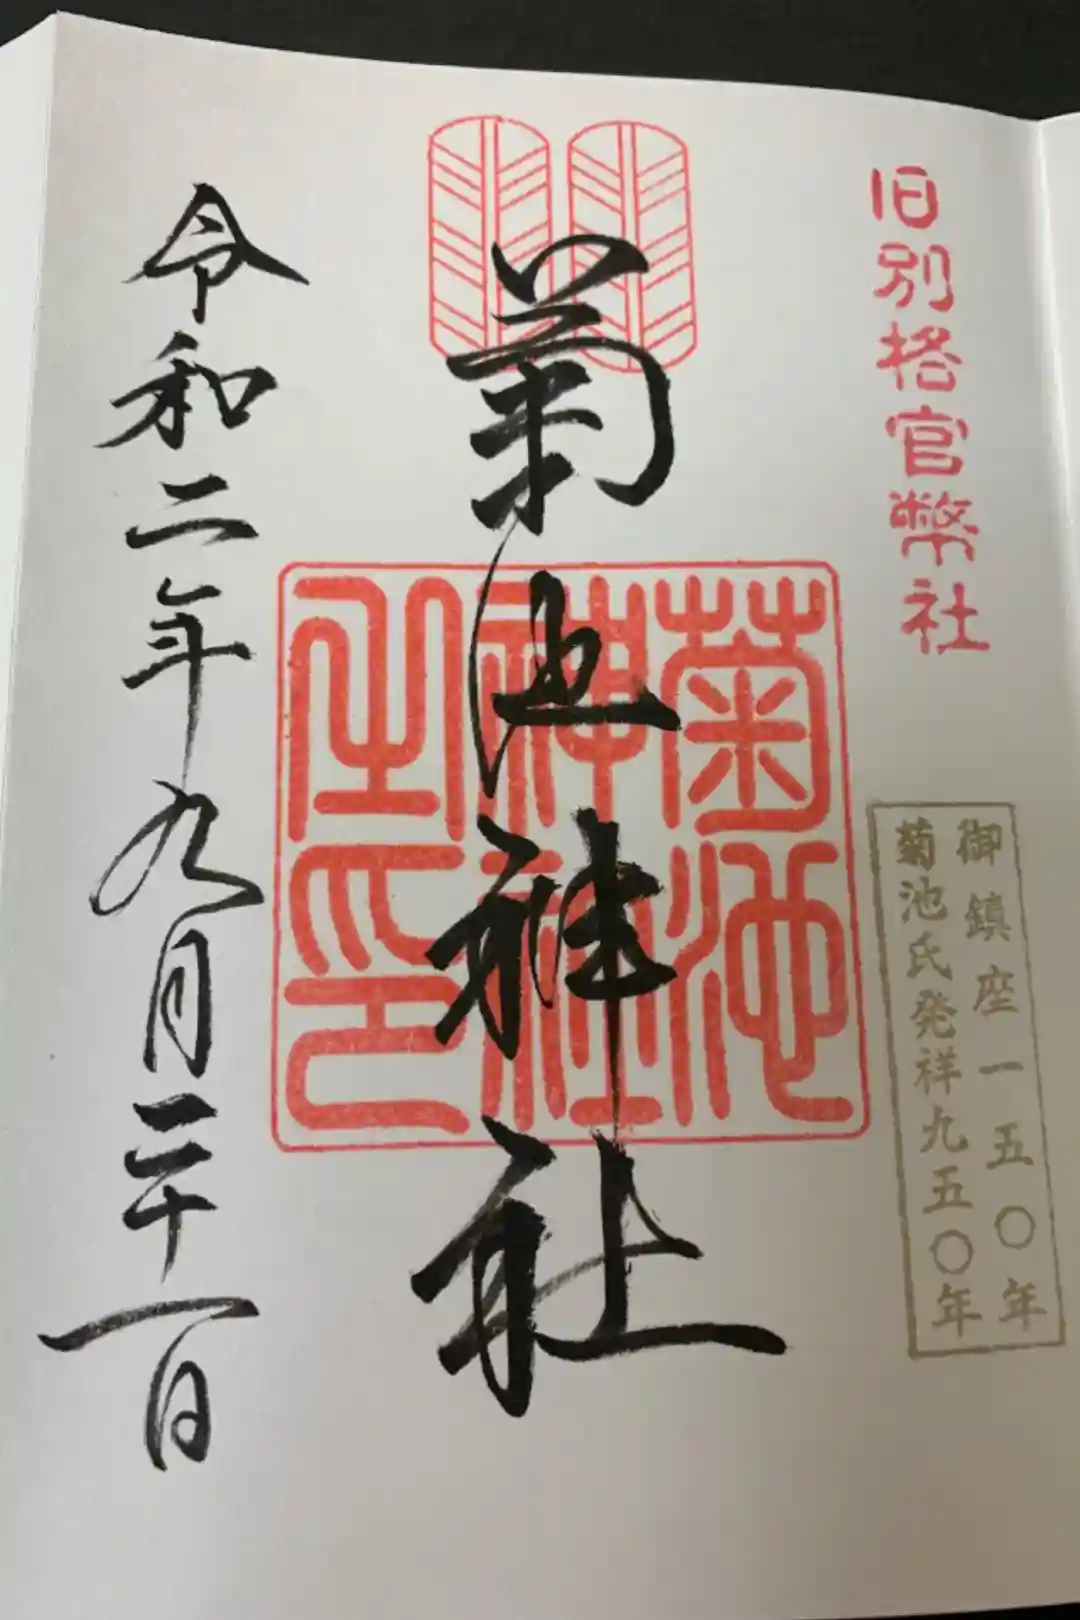 旧別格官幣社
御鎮座一五〇年
菊池氏発祥九五〇年
菊池神社
菊池
神社
之印
令和二年九月二十一日